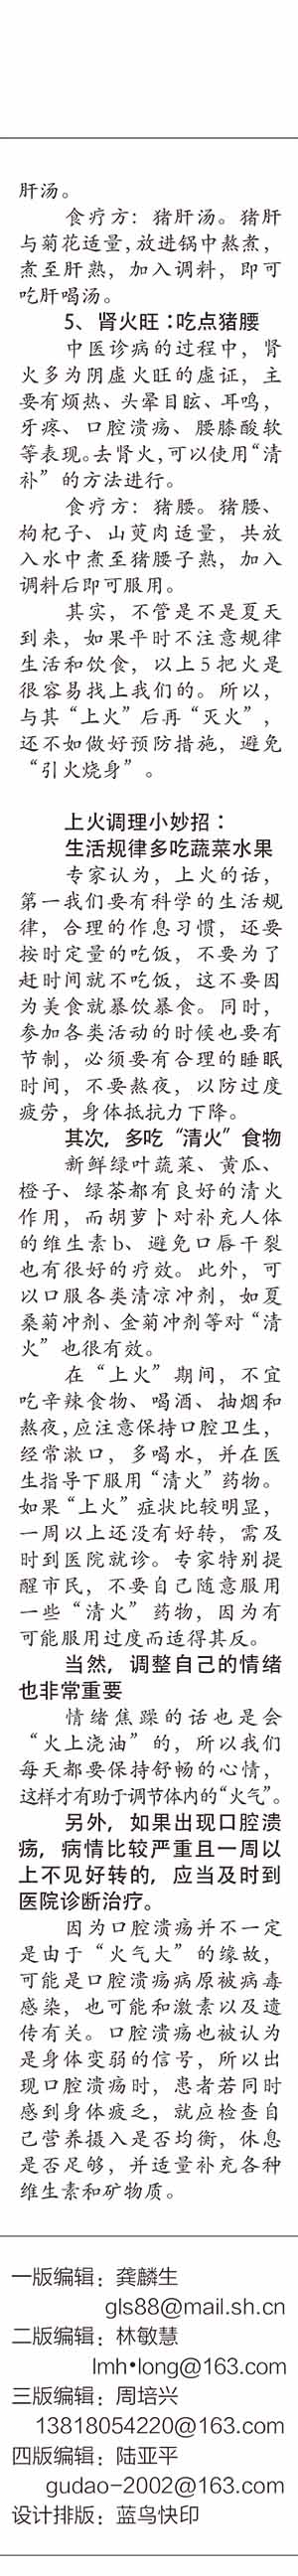 肝汤。
食疗方：猪肝汤。猪肝
与菊花适量，放进锅中熬煮，
煮至肝熟，加入调料，即可
吃肝喝汤。
5、肾火旺：吃点猪腰
中医诊病的过程中，肾
火多为阴虚火旺的虚证，主
要有烦热、头晕目眩、耳鸣，
牙疼、口腔溃疡、腰膝酸软
等表现。去肾火，可以使用“清
补”的方法进行。
食疗方：猪腰。猪腰、
枸杞子、山萸肉适量，共放
入水中煮至猪腰子熟，加入
调料后即可服用。
其实，不管是不是夏天
到来，如果平时不注意规律
生活和饮食，以上5把火是
很容易找上我们的。所以，
与其“上火”后再“灭火”，
还不如做好预防措施，避免
“引火烧身”。
上火调理小妙招：
生活规律多吃蔬菜水果
专家认为，上火的话，
第一我们要有科学的生活规
律，合理的作息习惯，还要
按时定量的吃饭，不要为了
赶时间就不吃饭，这不要因
为美食就暴饮暴食。同时，
参加各类活动的时候也要有
节制，必须要有合理的睡眠
时间，不要熬夜，以防过度
疲劳，身体抵抗力下降。
其次，多吃“清火”食物
新鲜绿叶蔬菜、黄瓜、
橙子、绿茶都有良好的清火
作用，而胡萝卜对补充人体
的维生素b、避免口唇干裂
也有很好的疗效。此外，可
以口服各类清凉冲剂，如夏
桑菊冲剂、金菊冲剂等对“清
火”也很有效。
在“上火”期间，不宜
吃辛辣食物、喝酒、抽烟和
熬夜，应注意保持口腔卫生，
经常漱口，多喝水，并在医
生指导下服用“清火”药物。
如果“上火”症状比较明显，
一周以上还没有好转，需及
时到医院就诊。专家特别提
醒市民，不要自己随意服用
一些“清火”药物，因为有
可能服用过度而适得其反。
当然，调整自己的情绪
也非常重要
情绪焦躁的话也是会
“火上浇油”的，所以我们
每天都要保持舒畅的心情，
这样才有助于调节体内的“火气”。
另外，如果出现口腔溃
疡，病情比较严重且一周以
上不见好转的，应当及时到
医院诊断治疗。
因为口腔溃疡并不一定
是由于“火气大”的缘故，
可能是口腔溃疡病原被病毒
感染，也可能和激素以及遗
传有关。口腔溃疡也被认为
是身体变弱的信号，所以出
现口腔溃疡时，患者若同时
感到身体疲乏，就应检查自
己营养摄入是否均衡，休息
是否足够，并适量补充各种
维生素和矿物质。
一版编辑：龚麟生
gls88@mail.sh.cn
二版编辑：林敏慧
lmh•long@163.com
三版编辑：周培兴
13818054220@163.com
四版编辑：陆亚平
gudao-2002@163.com
设计排版：蓝鸟快印